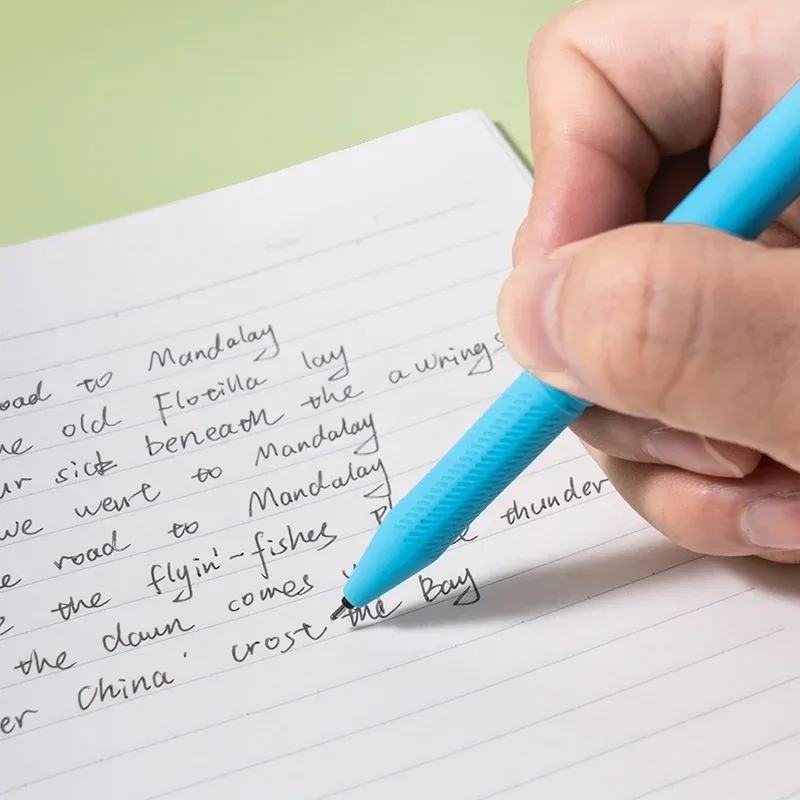 oad to Mandalay
he old Flotilla lay
ur sick beneath the awnings
we went to Mandalay
e road to Mandalay
e the flyin'-fishes
the dawn comes thunder
er China' crost the Bay